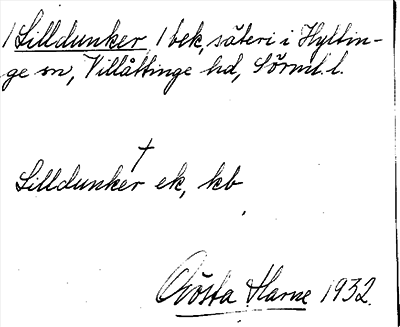 /Lilldunker, 1 bek, säteri i Hyltin-
ge sn, Villåttinge hd, Sörml. l.
Lilldunker ek, kb
Gösta Harne 1932.